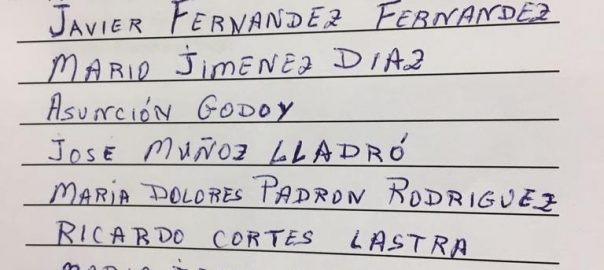 JAVIER FERNANDEZ FERNANDEZ
MARIO JIMENEZ DIAZ
ASUNCIÓN GODOY
JOSE MUÑOZ LLADRÓ
MARIA DOLORES PADRON RODRIGUEZ
RICARDO CORTES LASTRA